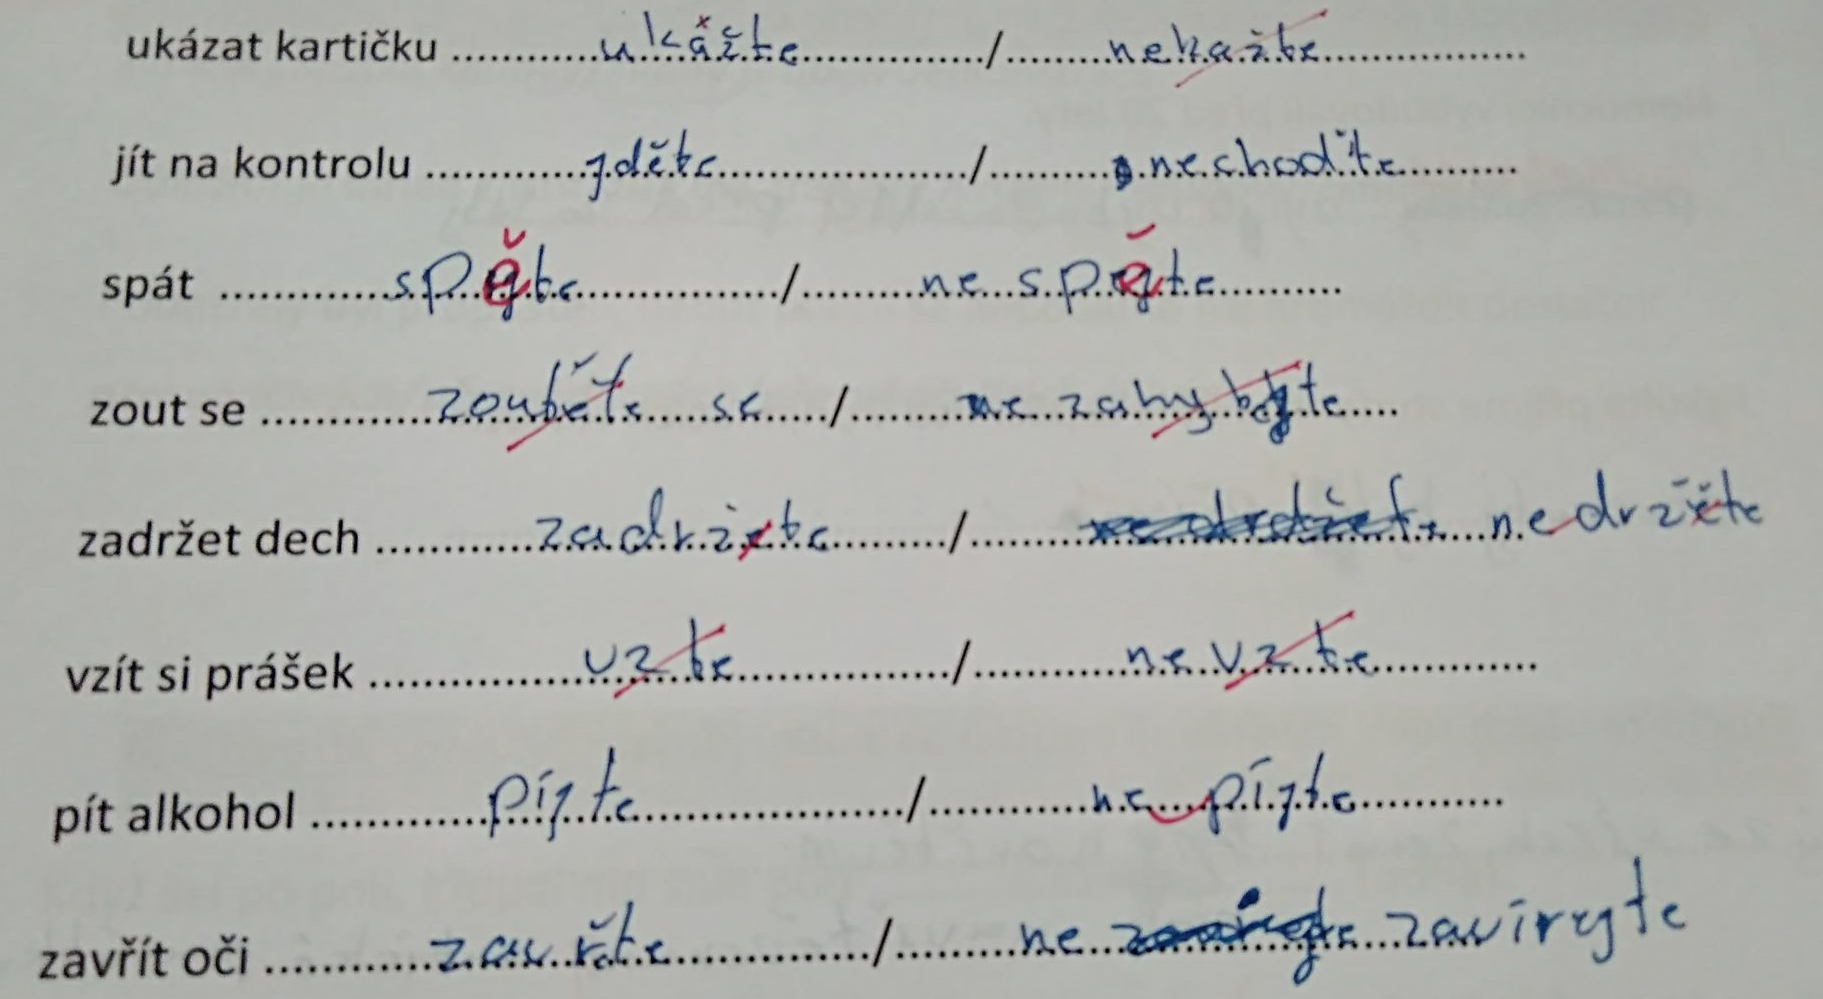 ukázat kartičku ............ukážte............../.........nekažte...............
jít na kontrolu ............jděte.................../.........nechoďte.........
spát .............spěte.............../.........ne spěte..........
zout se ............zouběťe se...../.........ne zahybejte.....
zadržet dech ............zadržete........./.........nedržěte
vzít si prášek ................vzte................/..........ne vzte............
pít alkohol .............píjte..................../............ne píjte...........
zavřít oči ............zavřete............./..........ne zavírejte